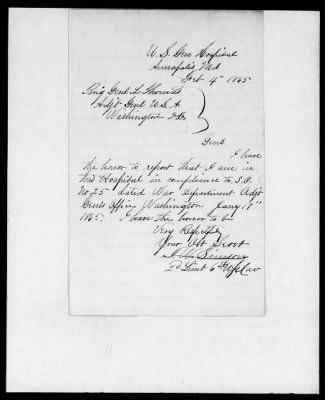 U. S. Gen Hospital
Annapolis Md
Feb 4th 1865
Brig Genl L Thomas
Adjt Genl U.S.A
Washington D.C.
Genl
I have
the honor to report that I am in
this Hospital in compliance to S.O.
No 25 dated War Department Adjt
Genls Office Washington Jany 17"
1865. I have the honor to be
Very Respectfully
Your Obt Servt
2d Lieut 6th Cav